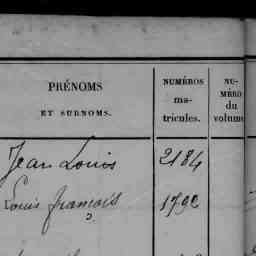 PRÉNOMS
ET SURNOMS.
NUMÉROS
ma-
tricules.
NU-
MÉRO
du
volume
Jean Louis 2184
Louis françois 1792